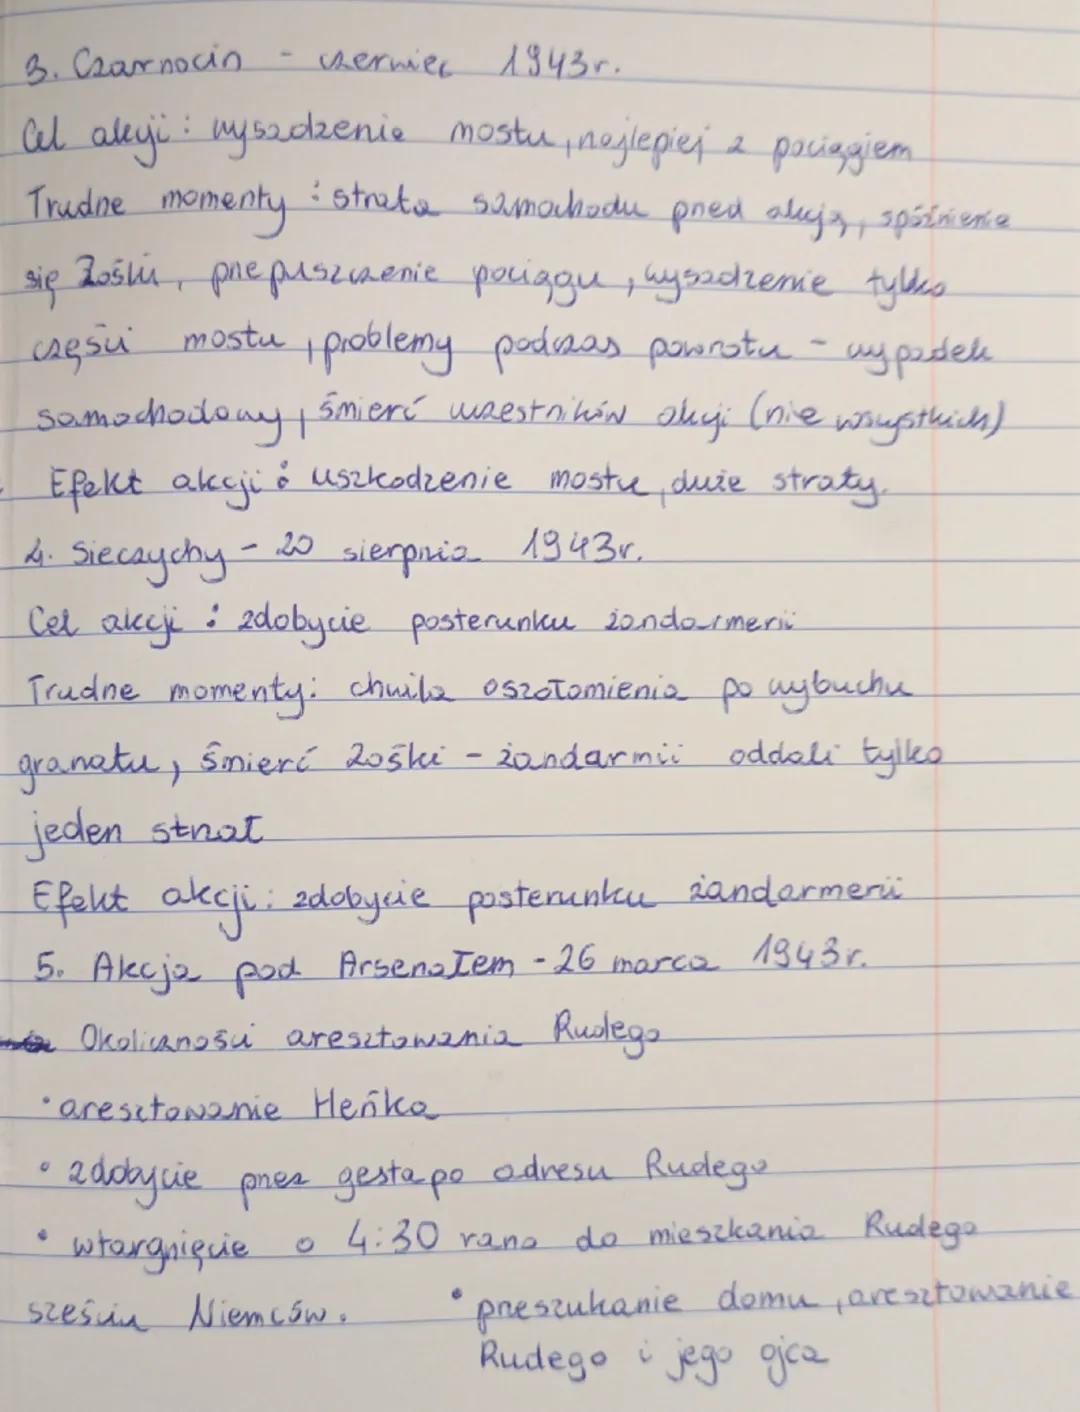 3. Czarnocin - czerwiec 1943r.
Cel akcji : wysadzenie mostu, najlepiej z pociągiem
Trudne momenty : strata samochodu przed akcją, spóźnienie
się Zośki, przepuszczenie pociągu, wysadzenie tylko
części mostu, problemy podczas powrotu - wypadek
samochodowy, śmierć uczestników akcji (nie wszystkich)
Efekt akcji : uszkodzenie mostu, duże straty.
4. Sieczychy - 20 sierpnia 1943r.
Cel akcji : zdobycie posterunku żandarmerii
Trudne momenty: chwila oszołomienia po wybuchu
granatu, śmierć Zośki - żandarmii oddali tylko
jeden strzał
Efekt akcji: zdobycie posterunku żandarmerii
5. Akcja pod Arsenałem - 26 marca 1943r.
Okoliczności aresztowania Rudego
• aresztowanie Heńka
• zdobycie przez gestapo adresu Rudego
• wtargnięcie o 4:30 rano do mieszkania Rudego
sześciu Niemców.
• przeszukanie domu, aresztowanie
Rudego i jego ojca